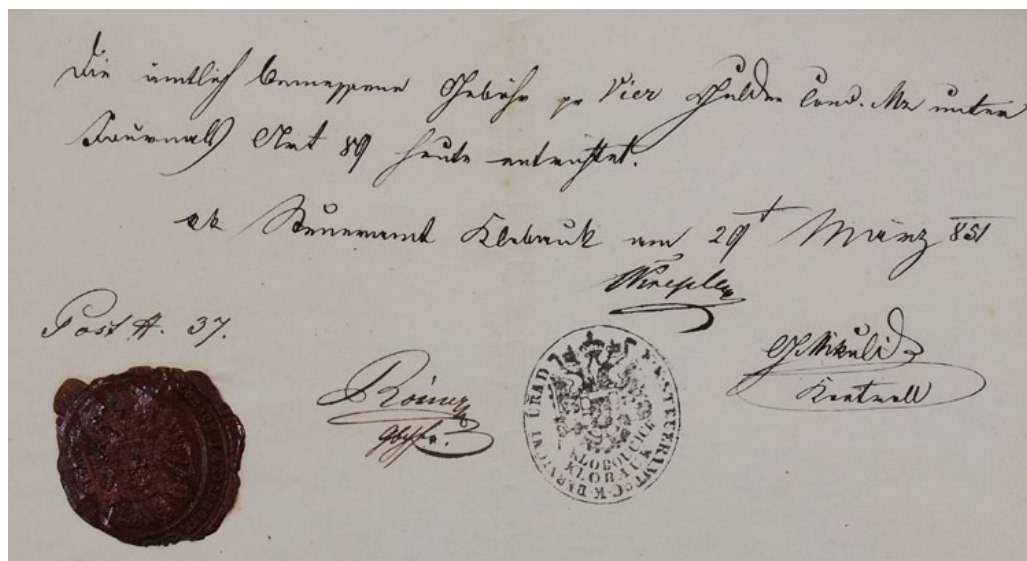 Die ämtlich bemessene Gebühr pr Vier Gulden Conv. Mz unter
Journal Art 89 heute entrichtet.
kk Steueramt Klobauk am 29t März 851
Post #. 37.
Römer
Kontroll
K. K. STEUERAMT
C. K. BERNIČNÍ ÚŘAD
KLOBOUCHE
KLOBAUK